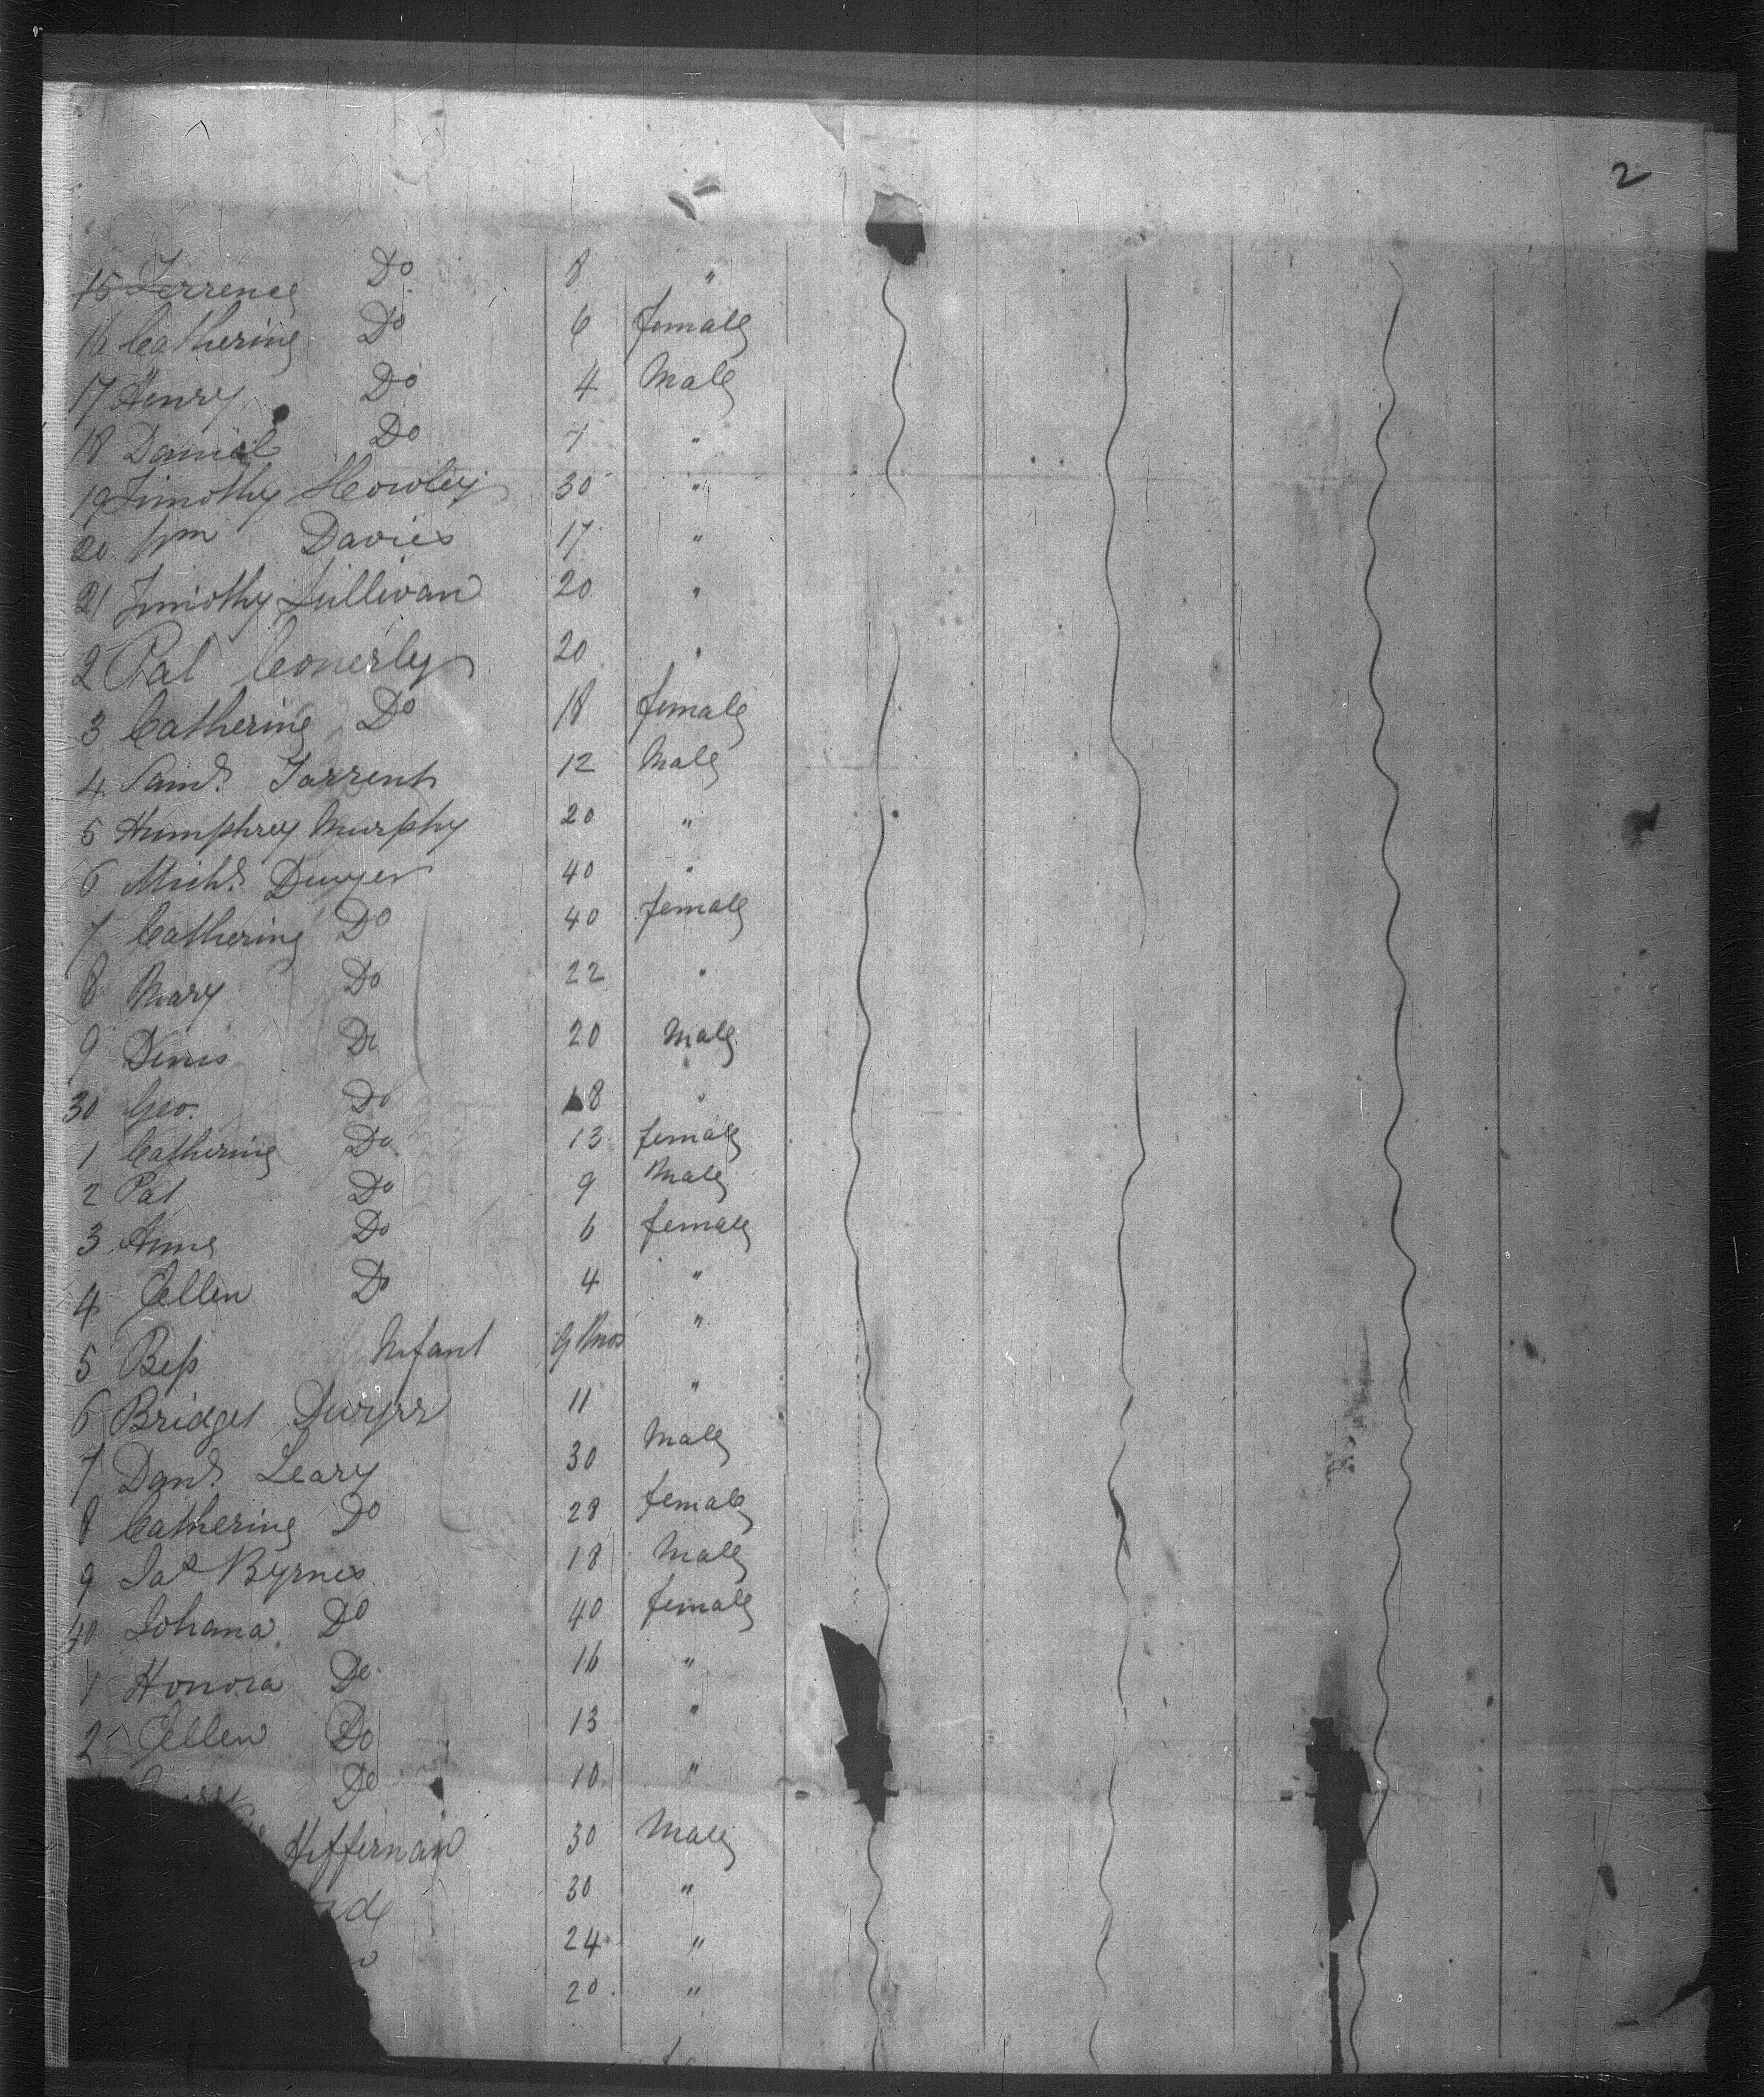 2
15 Terrence Do 8 "
16 Catherine Do 6 female
17 Henry Do 4 Male
18 Daniel Do 1 "
19 Timothy Howley 30 "
20 Wm Davies 17 "
21 Timothy Sullivan 20 "
2 Pat Conerly 20 "
3 Catherine Do 18 female
4 Saml. Torrent 12 Male
5 Humphrey Murphy 20 "
6 Michl. Dwyer 40 "
7 Catherine Do 40 female
8 Mary Do 22 "
9 Denis Do 20 Male
30 Geo. Do 18 "
1 Catherine Do 13 female
2 Pat Do 9 Male
3 Anne Do 6 female
4 Ellen Do 4 "
5 Bess Infant 9 Mos "
6 Bridget Dwyer 11 "
7 Danl. Leary 30 Male
8 Catherine Do 28 female
9 Jas Byrnes 18 Male
40 Johana Do 40 female
1 Honora Do 16 "
2 Ellen Do 13 "
Do 10 "
Heffernan 30 Male
30 "
24 "
20 "